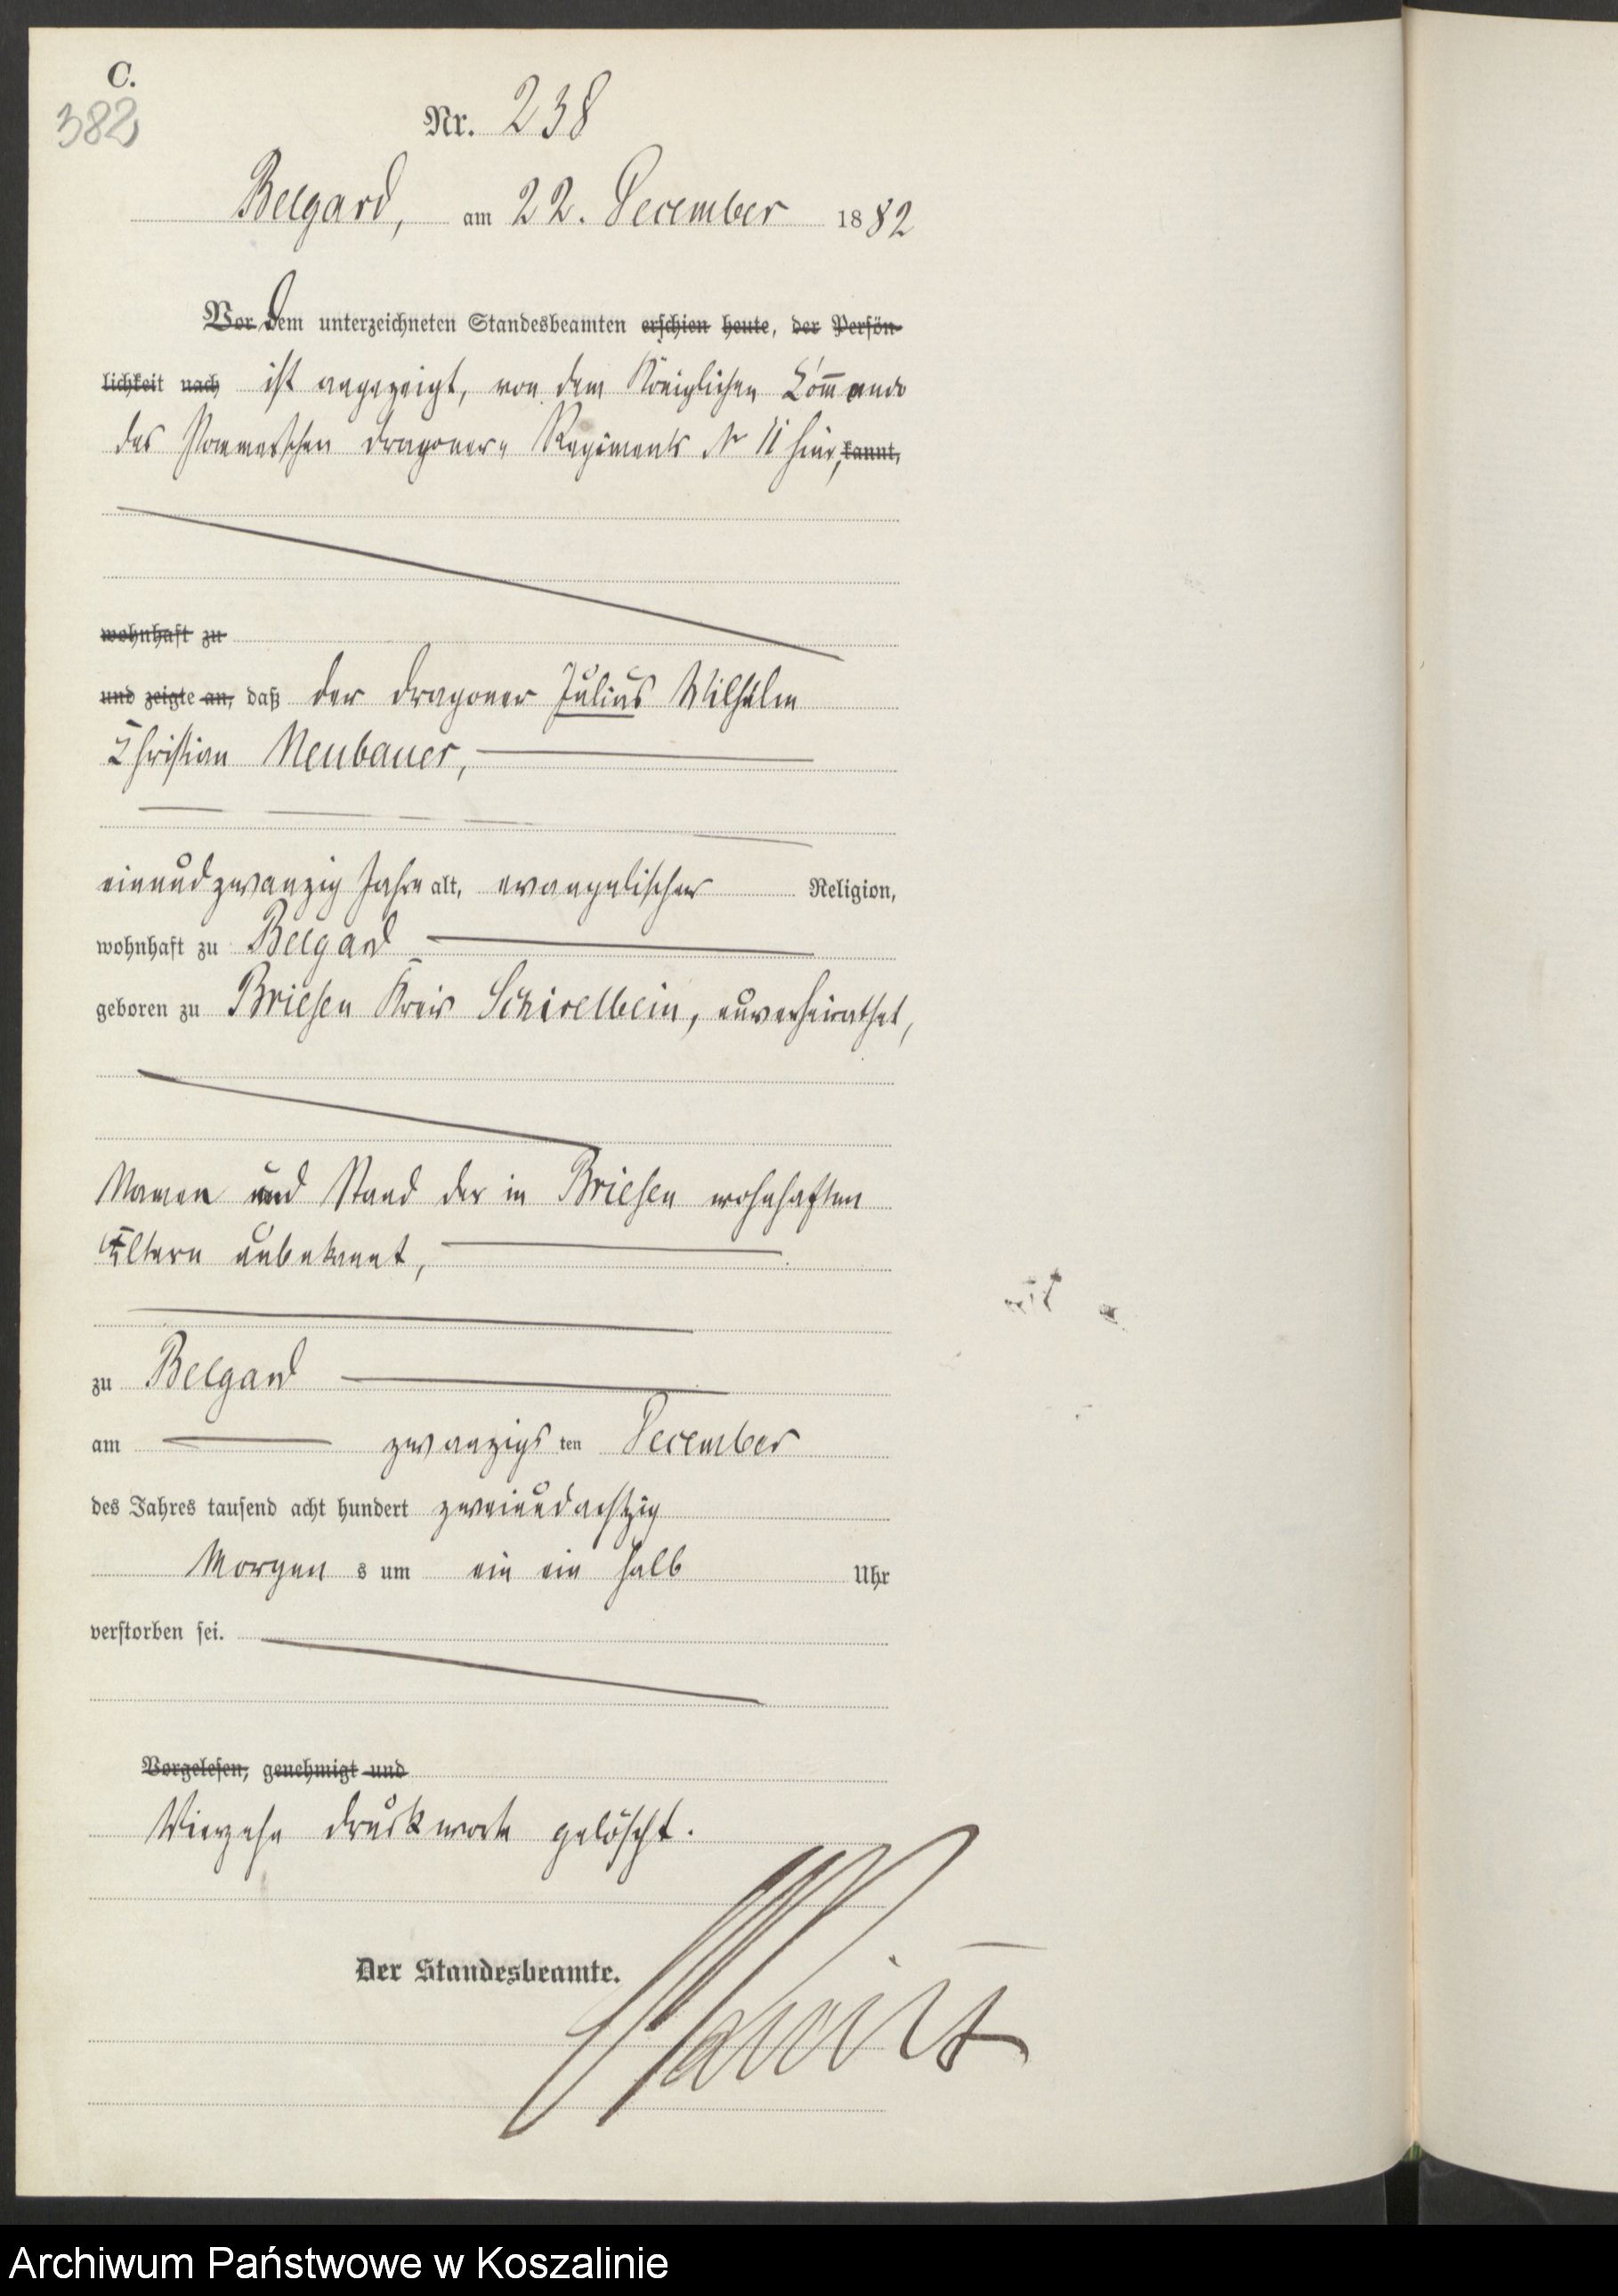 C.
382
Nr. 238
Belgard, am 22. December 1882
Vor Dem unterzeichneten Standesbeamten erschien heute, der Persön-
lichkeit nach ist angezeigt, von dem Königlichen Commando
des Pommerschen Dragoner- Regiments Nr 11 hier, kannt,
wohnhaft zu
und zeigte an, daß der Dragoner Julius Wilhelm
Christian Neubauer,
einundzwanzig Jahre alt, evangelischer Religion,
wohnhaft zu Belgard
geboren zu Briesen Kreis Schivelbein, unverheirathet,
Namen und Stand der in Briesen wohnhaften
Eltern unbekannt,
zu Belgard
am zwanzigsten December
des Jahres tausend acht hundert zweiundachtzig
Morgens um ein ein halb Uhr
verstorben sei.
Vorgelesen, genehmigt und
Vierzehn Druckworte gelöscht.
Der Standesbeamte.
Archiwum Państwowe w Koszalinie